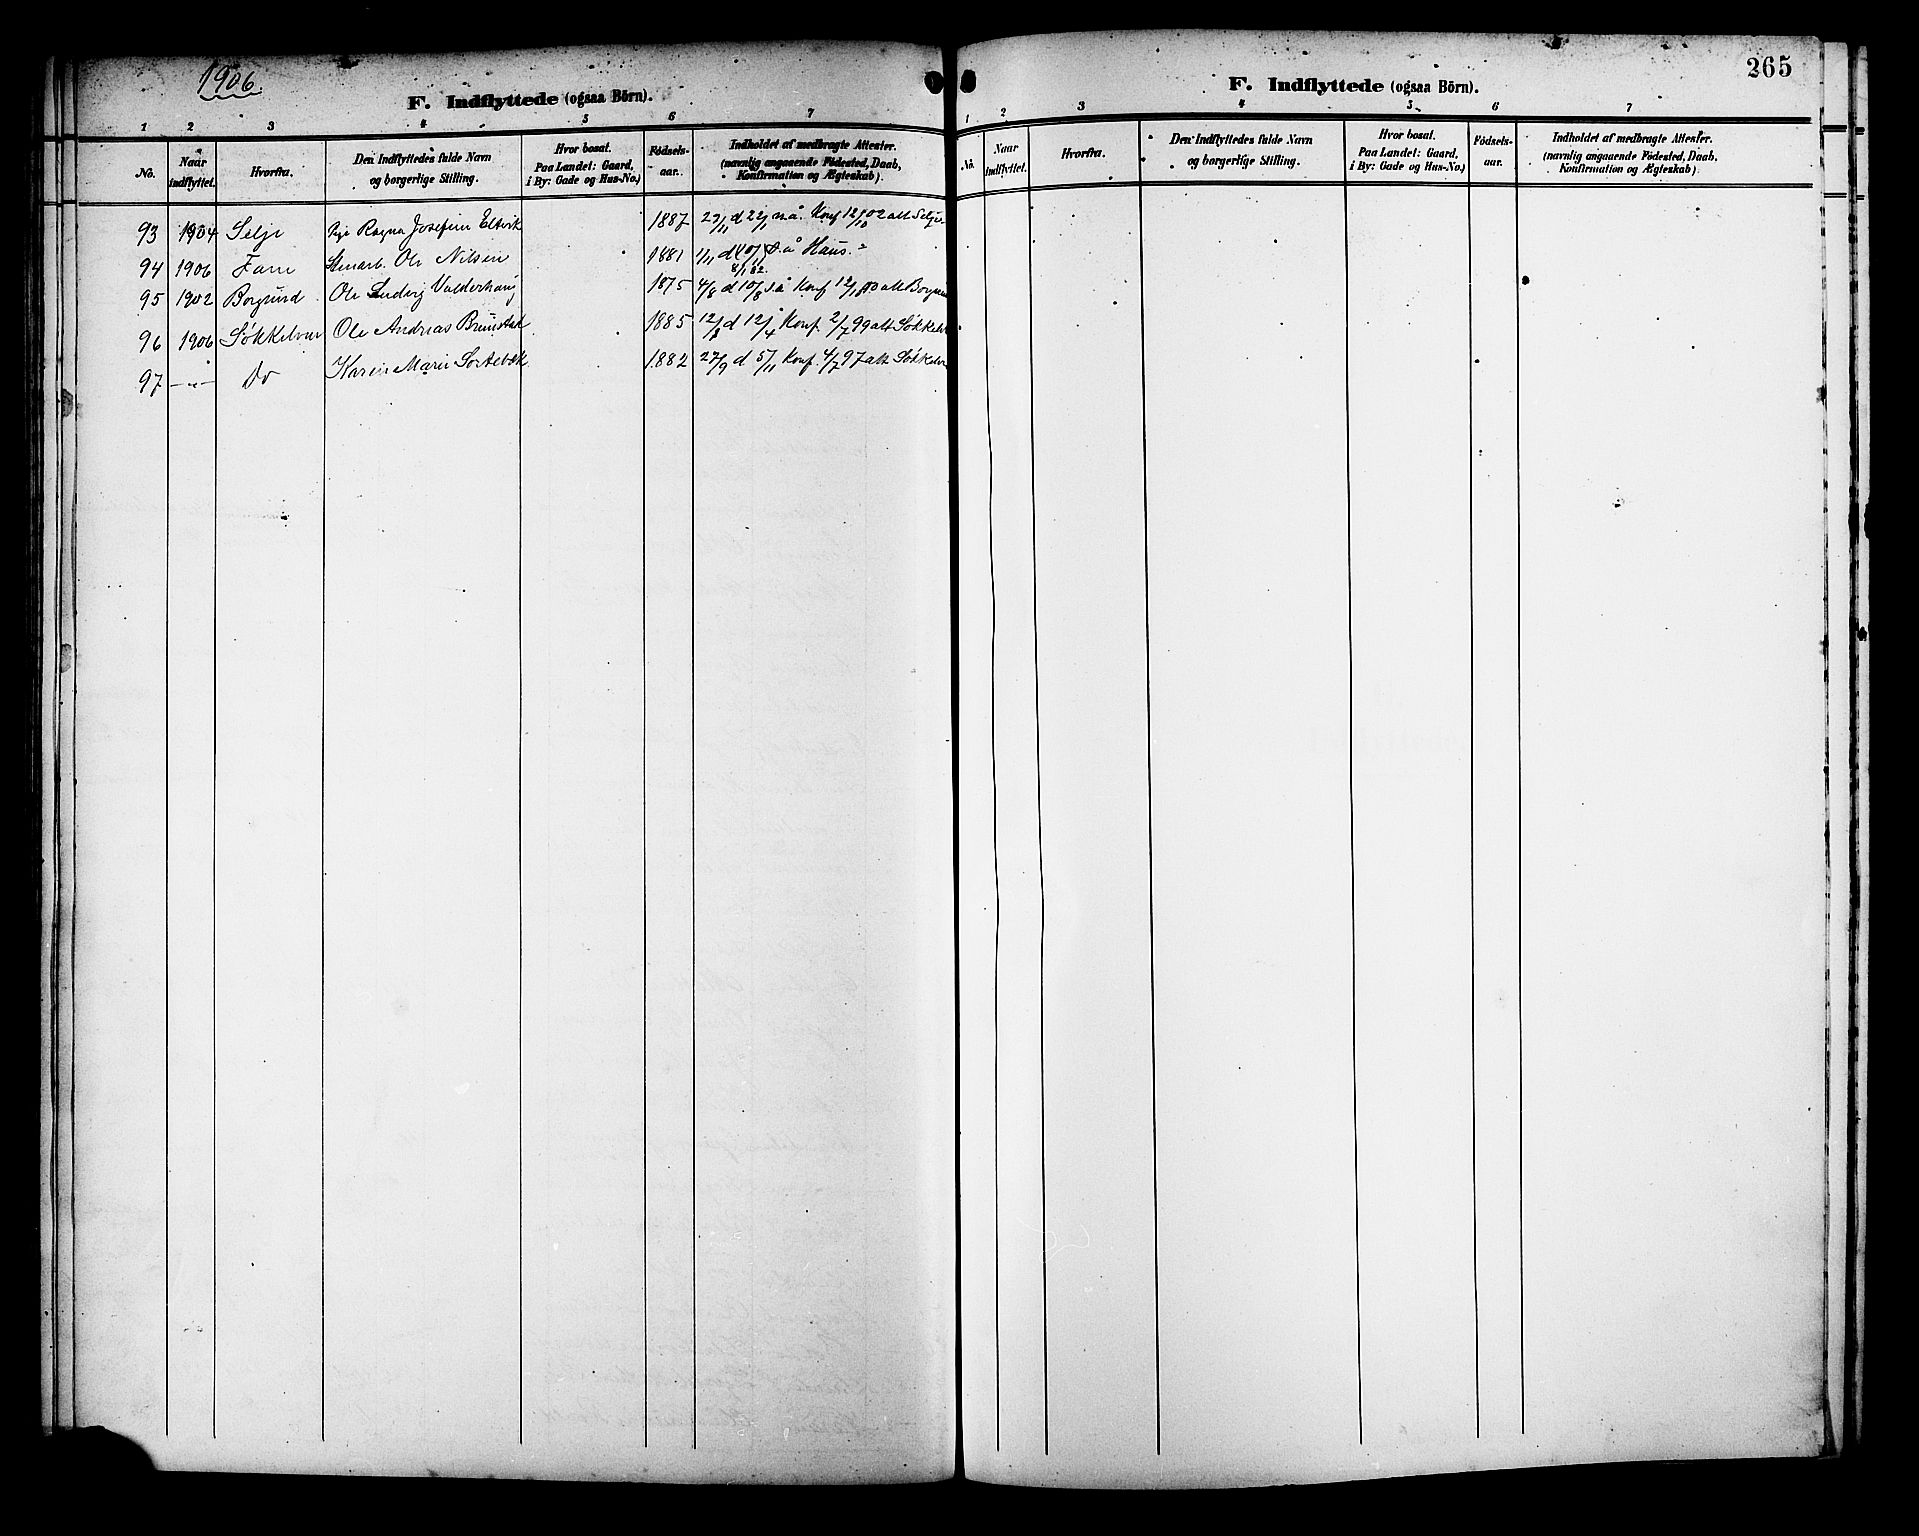 1906.
F. Indflyttede (ogsaa Börn).
1 2 3 4 5 6 7
No. Naar indflyttet. Hvorfra. Den Indflyttedes fulde Navn og borgerlige Stilling. Hvor bosat. Paa Landet: Gaard, i By: Gade og Hus-No.) Födsels-aar. Indholdet af medbragte Attester. (navnlig angaaende Födested, Daab, Konfirmation og Ægteskab).
93 1904 Selje Pige Ragna Josefine Eltvik 1887 27/11 d 22/1 n.å. Konf 12/10 02 alt Selje
94 1906 Fane Stenarb. Ole Nilsen 1881 1/11 d Haus.
8/1 82.
95 1902 Borgund Ole Ludvig Valderhaug 1875 4/8 d 10/8 s.å Konf alt Borgund
96 1906 Søkkelven Ole Andreas Brunstad 1885 d 12/4 Konf. 2/7 99 alt Søkkelv
97 —"— Do Karen Marie 1882 27/9 d 5/11 Konf. 4/7 97 alt Søkkelv
265
F. Indflyttede (ogsaa Börn).
1 2 3 4 5 6 7
No. Naar indflyttet. Hvorfra. Den Indflyttedes fulde Navn og borgerlige Stilling. Hvor bosat. Paa Landet: Gaard, i By: Gade og Hus-No.) Födsels-aar. Indholdet af medbragte Attester. (navnlig angaaende Födested, Daab, Konfirmation og Ægteskab).